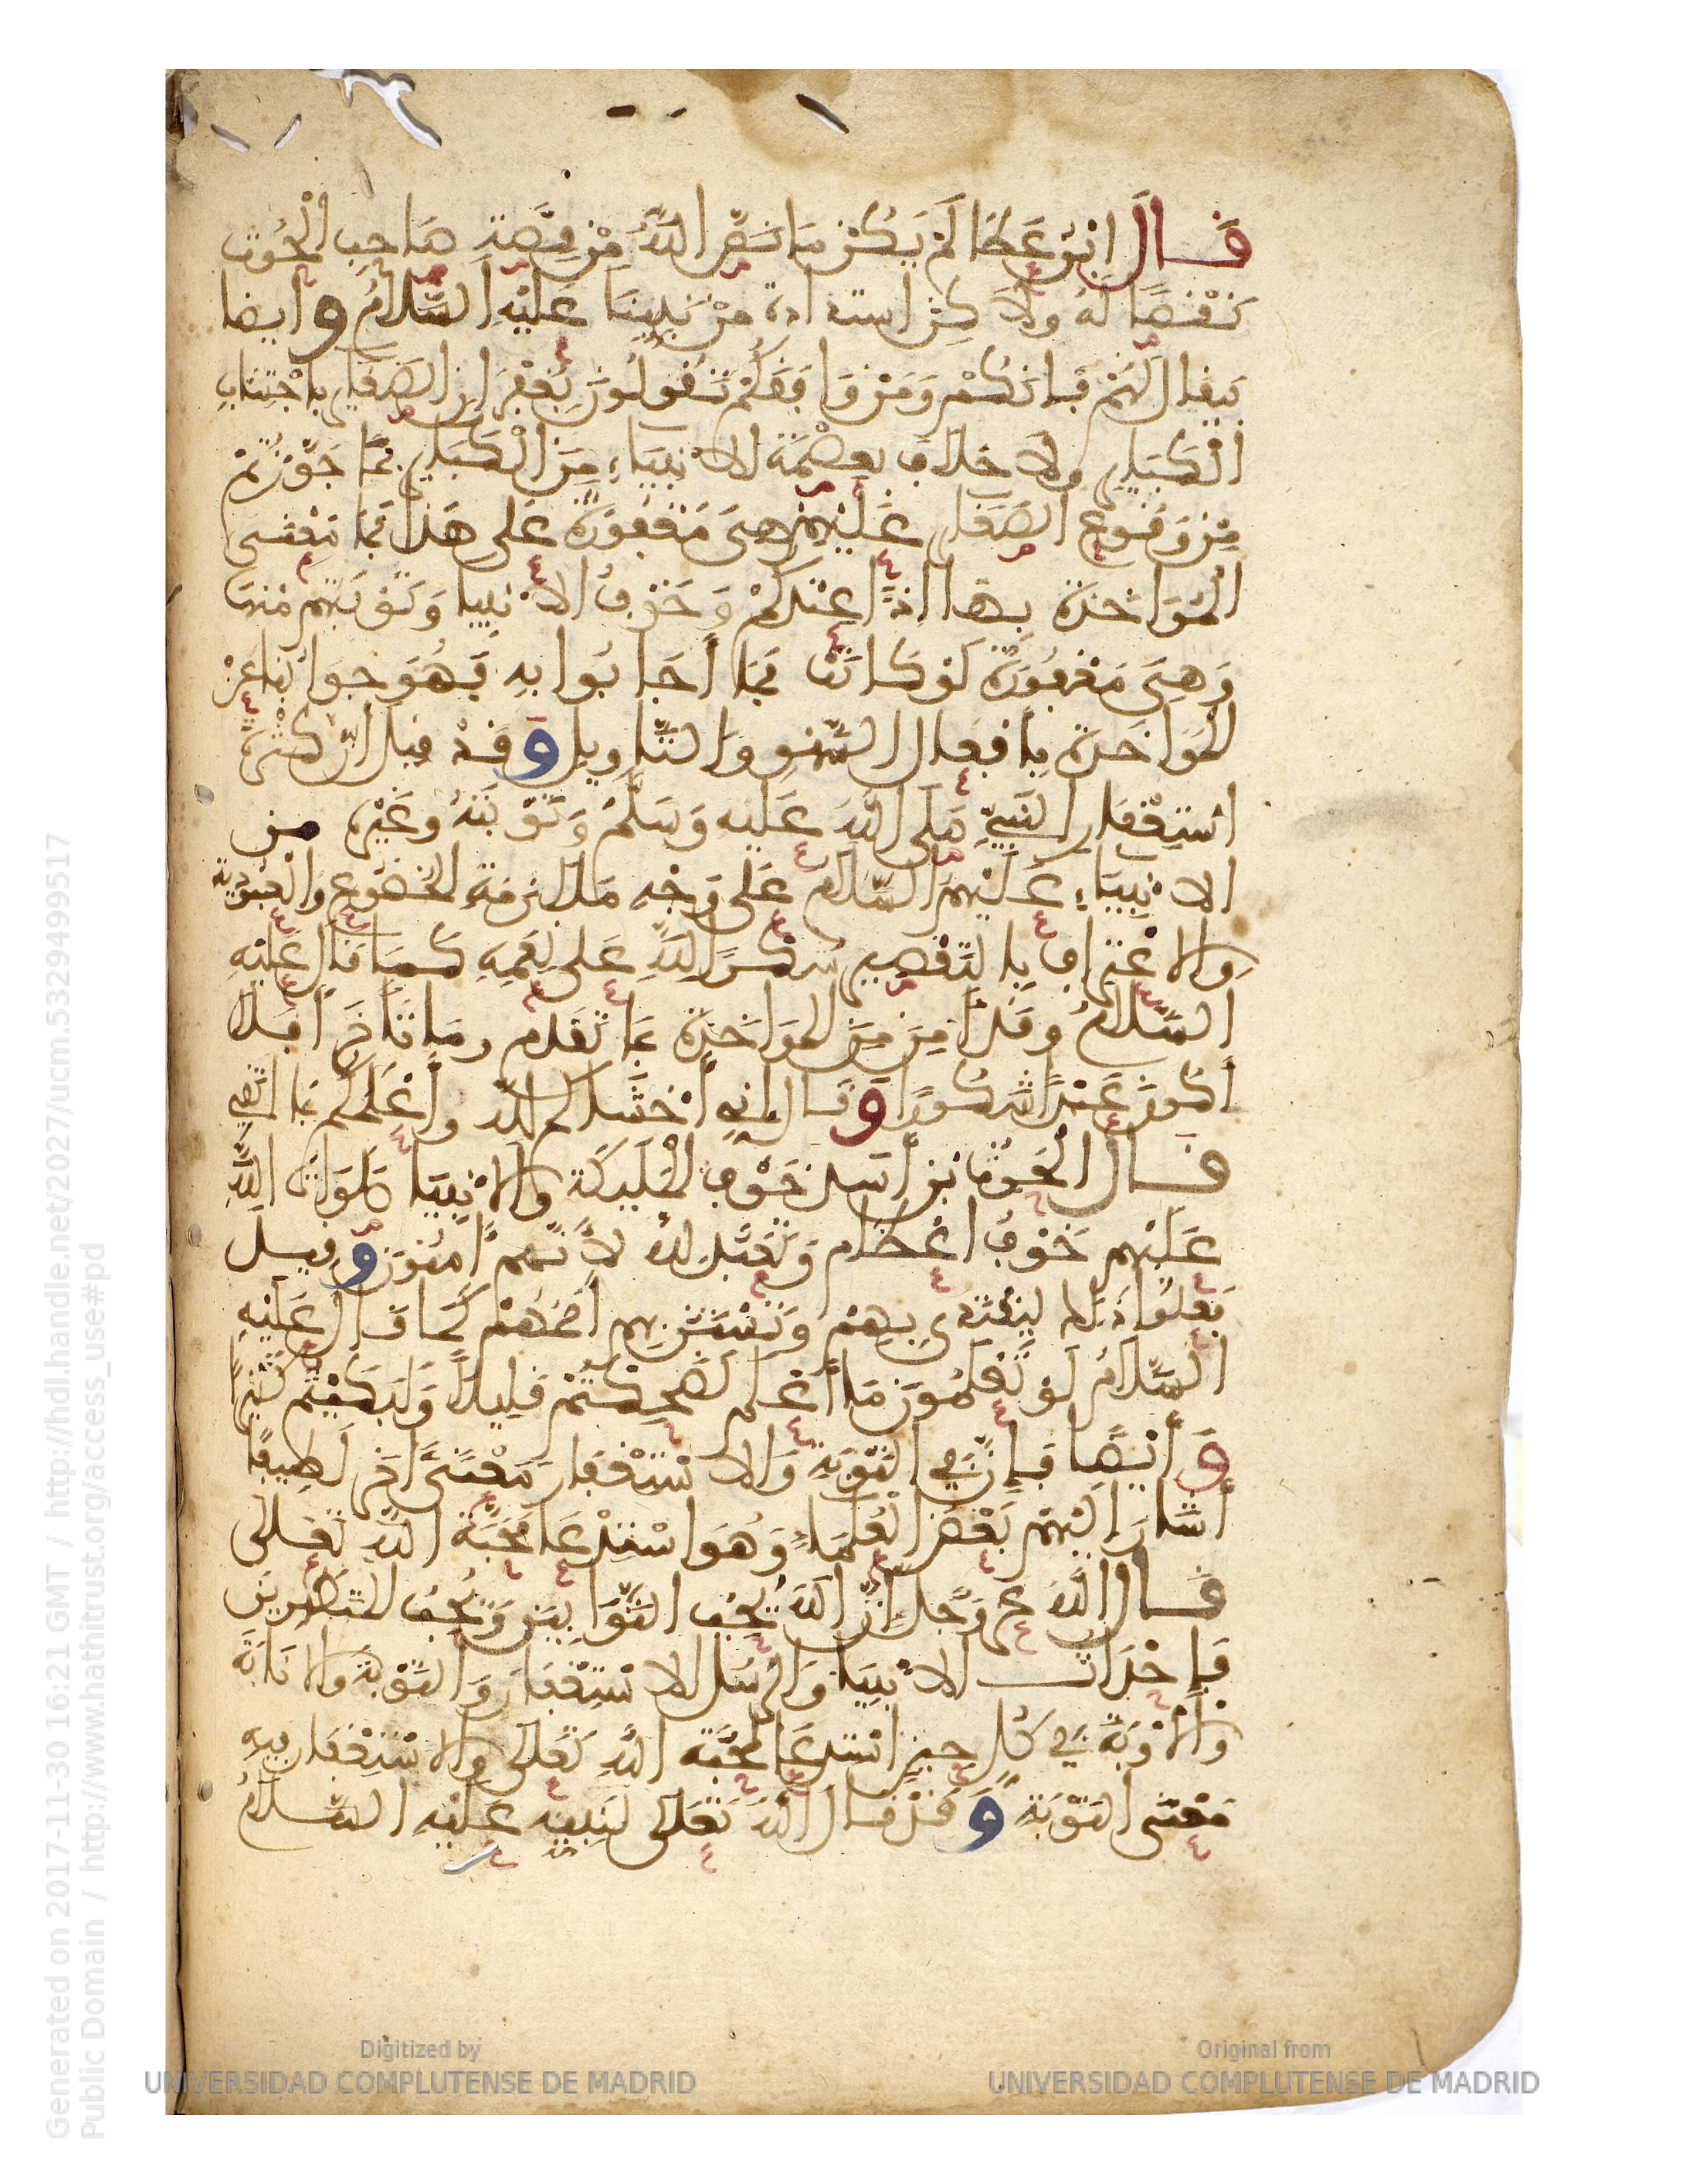 قال ابن عطا لم يكن ما نص الله من قصة صاحب الحوت
نقصا له ولاكن استدادة من نبينا عليه السلام وايضا
فيقال لهم فإنكم ومن وافقكم تقولون بغفران الصغاير باجتناب
الكباير ولا خلاف بعصمة الانبياء من الكباير بما جوزتم
من وقوع الصغاير عليهم هي مغفورة على هذا بما معنى
المواخذة بها اذا عندكم وخوف الانبيا وتوبتهم منها
وهي مغفورة لو كانت بما أجابوا به فهو جوابنا عن
المواخذة بافعال السهو والتاويل وقد قيل ان كثرة
استغفار النبي صلى الله عليه وسلم وتوبته وغيره من
الانبياء عليهم السلام على وجه ملازمة الخضوع والعبودية
والاعتراف بالتقصير شكرا لله على نعمه كما قال عليه
السلام وقد أمن من المواخذة بما تقدم وما تأخر أفلا
أكون عبدا شكورا وقال إني أخشاكم لله وأعلمكم بما اتقي
قال الحرث بن أسد خوف المليكة والانبيا صلوات الله
عليهم خوف اعظام وتعبد لله لأنهم آمنون وقيل
فعلوا ذلك ليقتدى بهم وتستن بهم أممهم كما قال عليه
السلام لو تعلمون ما أعلم لضحكتم قليلا ولبكيتم كثيرا
وأيضا فإن في التوبة والاستغفار معنى آخر لطيفا
أشار إليهم بعض العلماء وهو استدعا محبة الله تعالى
قال الله عز وجل إن الله يحب التوابين ويحب المتطهرين
فإحداث الانبيا والرسل الاستغفار والتوبة والانابة
والأوبة في كل حين استدعا لمحبة الله تعالى والاستغفار فيه
معنى التوبة وقد قال الله تعالى لنبيه عليه السلام
Generated on 2017-11-30 16:21 GMT / http://hdl.handle.net/2027/ucm.5329499517
Public Domain / http://www.hathitrust.org/access_use#pd
Digitized by
UNIVERSIDAD COMPLUTENSE DE MADRID
Original from
UNIVERSIDAD COMPLUTENSE DE MADRID